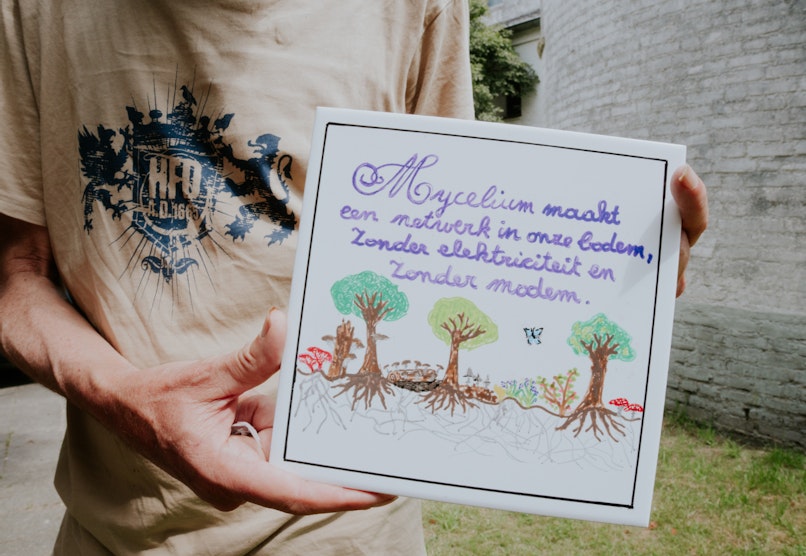 HFD
A.D. 166
Mycelium maakt
een netwerk in onze bodem,
Zonder elektriciteit en
Zonder modem.